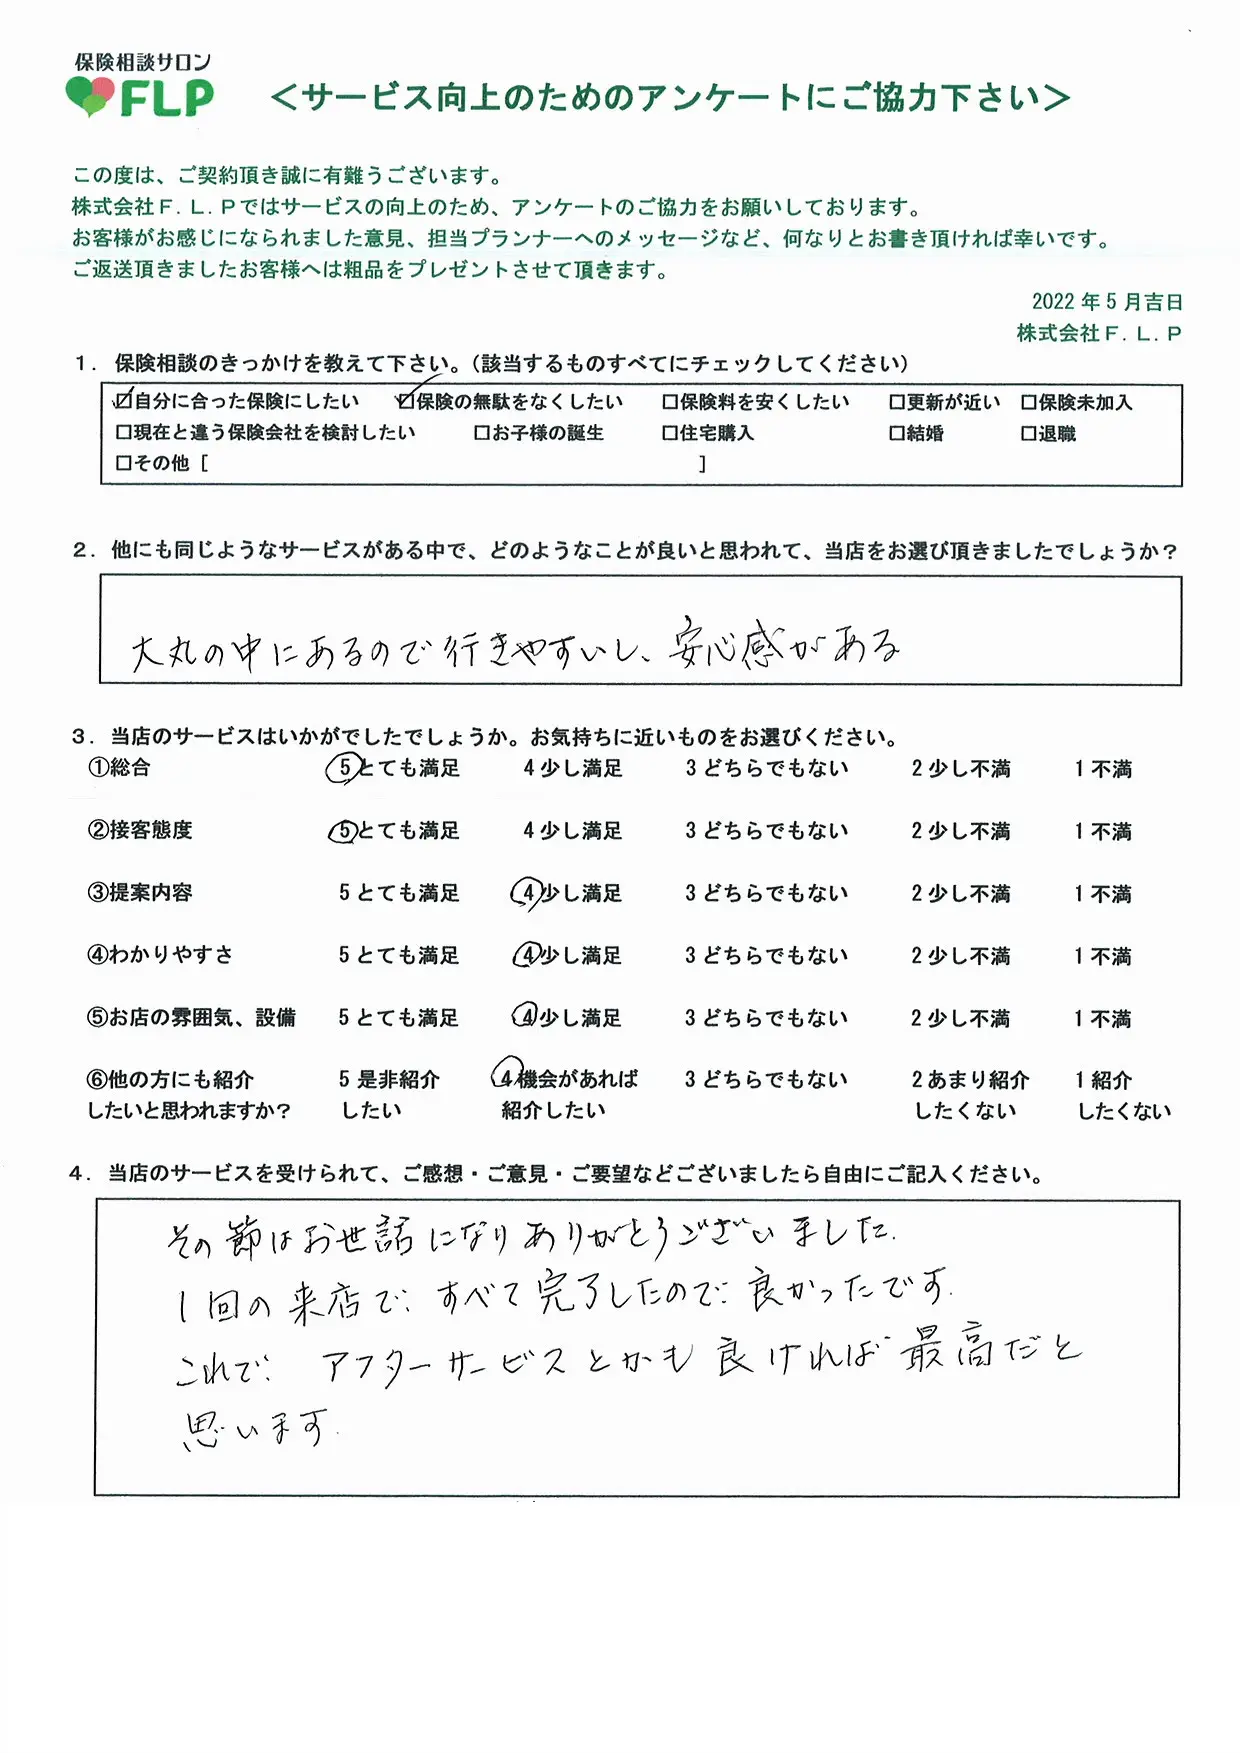 保険相談サロン
FLP
＜サービス向上のためのアンケートにご協力下さい＞
この度は、ご契約頂き誠に有難うございます。
株式会社Ｆ．Ｌ．Ｐではサービスの向上のため、アンケートのご協力をお願いしております。
お客様がお感じになられました意見、担当プランナーへのメッセージなど、何なりとお書き頂ければ幸いです。
ご返送頂きましたお客様へは粗品をプレゼントさせて頂きます。
2022 年 5 月吉日
株式会社Ｆ．Ｌ．Ｐ
１．保険相談のきっかけを教えて下さい。（該当するものすべてにチェックしてください）
☑自分に合った保険にしたい ☑保険の無駄をなくしたい □保険料を安くしたい □更新が近い □保険未加入
□現在と違う保険会社を検討したい □お子様の誕生 □住宅購入 □結婚 □退職
□その他［ ］
２．他にも同じようなサービスがある中で、どのようなことが良いと思われて、当店をお選び頂きましたでしょうか？
大丸の中にあるので行きやすいし、安心感がある
３．当店のサービスはいかがでしたでしょうか。お気持ちに近いものをお選びください。
①総合 5 とても満足 4 少し満足 3 どちらでもない 2 少し不満 1 不満
②接客態度 5 とても満足 4 少し満足 3 どちらでもない 2 少し不満 1 不満
③提案内容 5 とても満足 4 少し満足 3 どちらでもない 2 少し不満 1 不満
④わかりやすさ 5 とても満足 4 少し満足 3 どちらでもない 2 少し不満 1 不満
⑤お店の雰囲気、設備 5 とても満足 4 少し満足 3 どちらでもない 2 少し不満 1 不満
⑥他の方にも紹介 5 是非紹介 4 機会があれば 3 どちらでもない 2 あまり紹介 1 紹介
したいと思われますか？ したい 紹介したい したくない したくない
４．当店のサービスを受けられて、ご感想・ご意見・ご要望などございましたら自由にご記入ください。
その節はお世話になりありがとうございました.
1回の来店で、すべて完了したので、良かったです.
これで、アフターサービスとかも良ければ最高だと
思います.